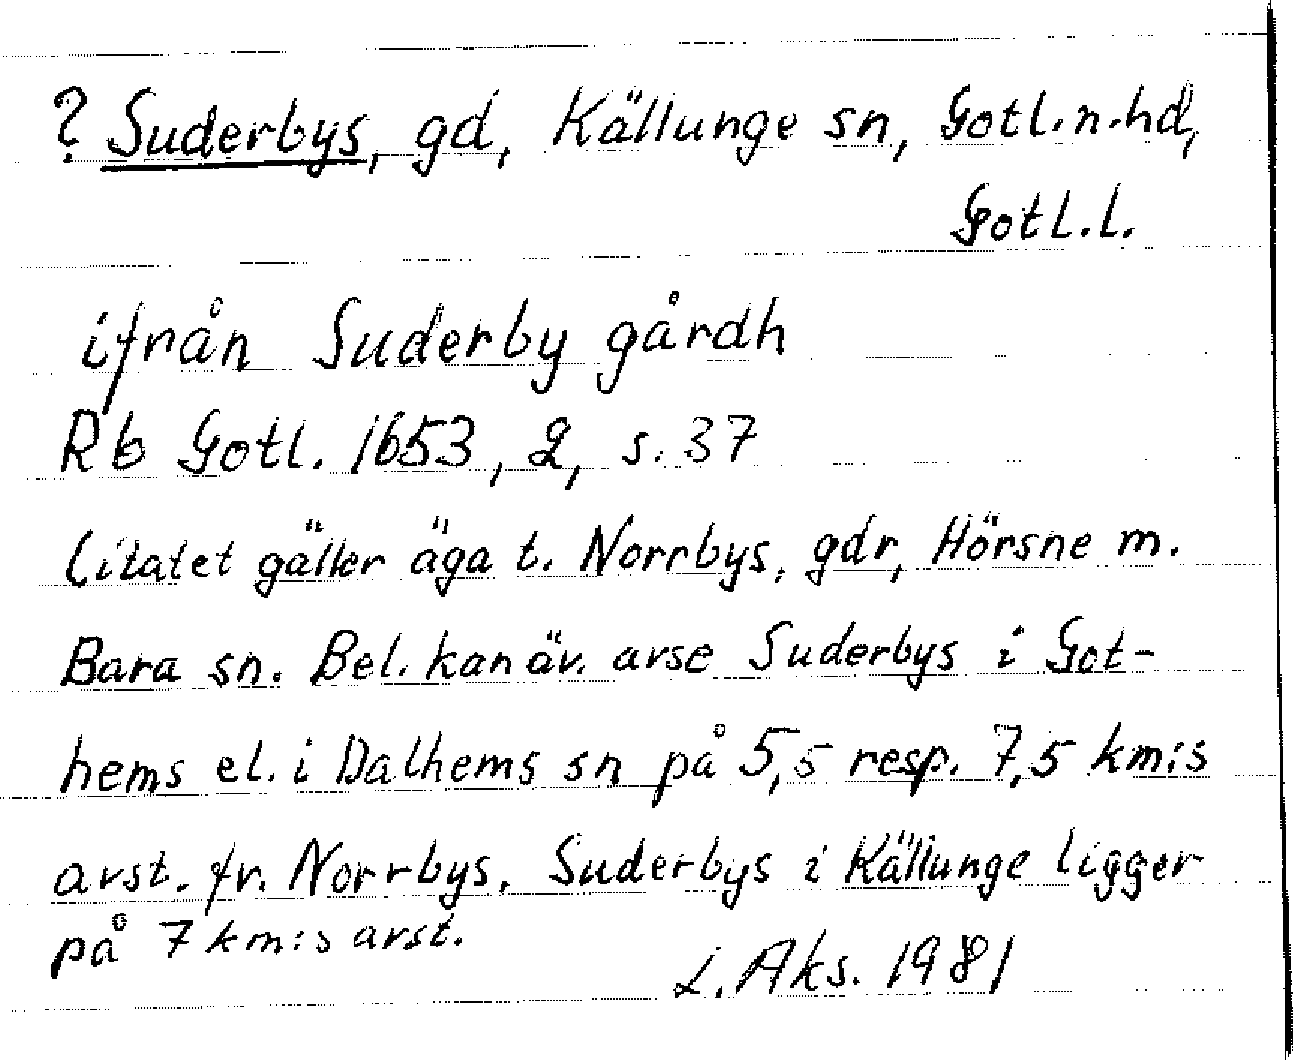 ? Suderbys, gd, Källunge sn, Gotl.n.hd,
Gotl.l.
ifrån Suderby gårdh
Rb Gotl. 1653, 2, s. 37
Citatet gäller äga t. Norrbys, gdr, Hörsne m.
Bara sn. Bel. kan äv. avse Suderbys i Got-
hems el. i Dalhems sn på 5,5 resp. 7,5 km:s
avst. fr. Norrbys. Suderbys i Källunge ligger
på 7 km:s avst.
L. Aks. 1981